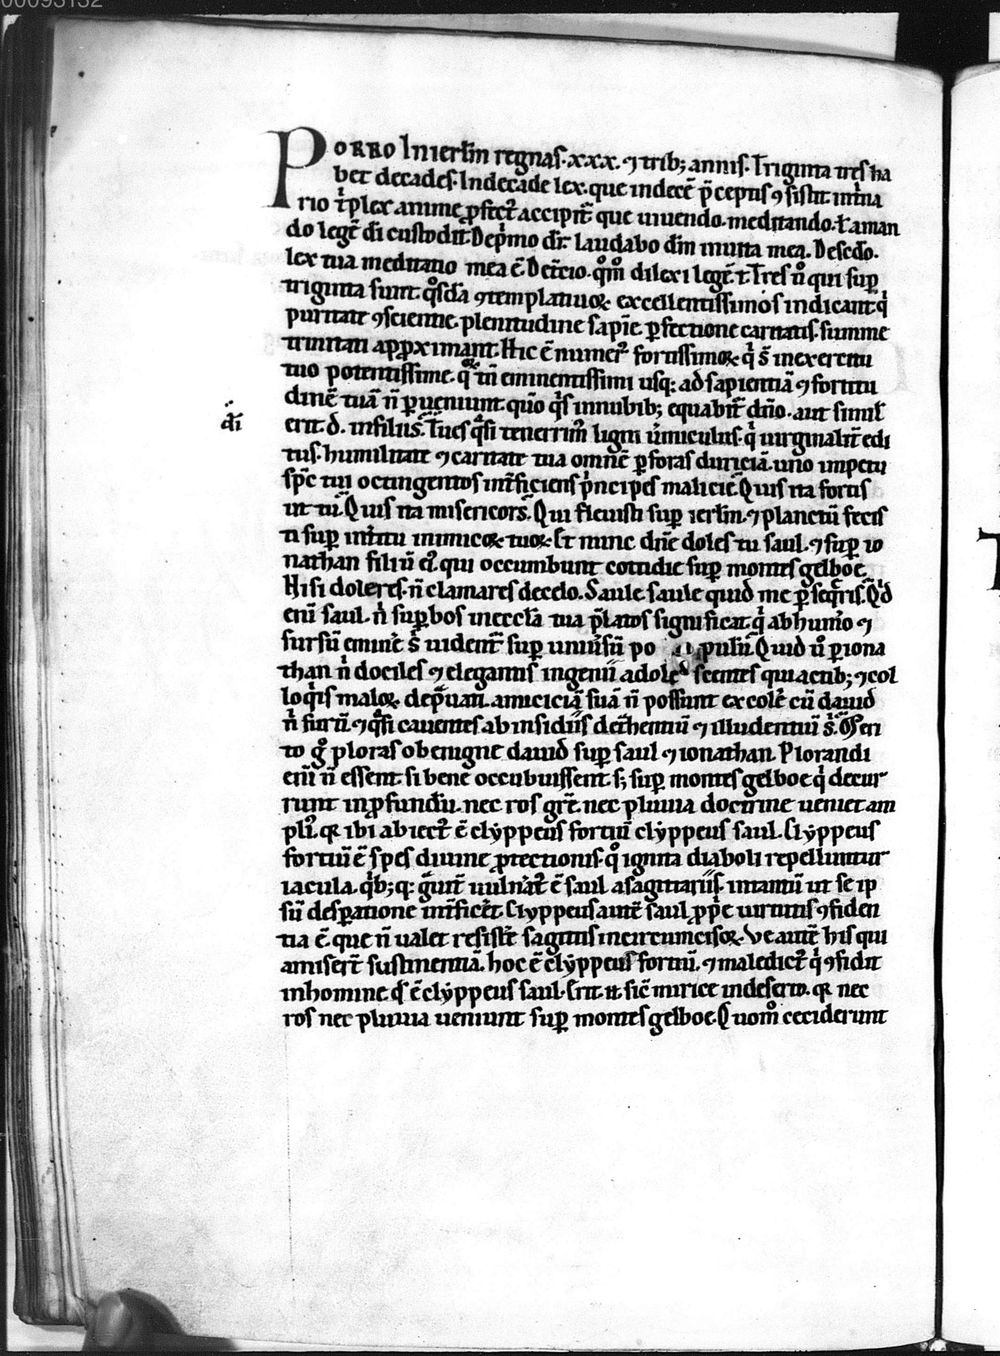 00093132
PORRO In ierl̄m regnas .xxx. ⁊ trib; annis. Triginta tres ha
bet decades. In decade lex. que in decē p̄ceptis ꝯsistit. in t̄na
rio t̄plex anime ꝓfect᷒ accipit̄ que uiuendo. meditando. ł aman
do legē dī custodit. De p̄mo dr̄. laudabo dn̄m in uita mea. De sc̄do.
lex tua meditatio mea ē. De t̄cio. qm̄ dilexi legē t. Tres ū qui sup̄
triginta sunt. qͦsda ꝯtemplatiuoꝝ excellentissimos indicant qͥ
puritate ꝯscientie. plenitudine sapīe. ꝑfectione caritatis. summe
trinitati apꝓximant. Hic ē numer᷒ fortissimoꝝ qͥ s̄ in exercitu
tuo potentissime. qͦꝝ tn̄ eminentissimi usq; ad sapientiā ⁊ fortitu
dinē tuā n̄ ꝑueniunt. qm̄o qͥs in nubib; equabit̄ dn̄o. aut similˀ
dī
erit d. in filiis. Tu es qͣsi tenerrim᷒ ligni ūmiculus. qͥ uirginalit̄ edi
tus. humilitate ⁊ caritate tua omnē ꝑforas duriciā. uno impetu
sp̄c tui octingentos int̄ficiens p̄ncipes malicie. Quis ita fortis
ut tu. Quis ita misericors. Qui fleuisti sup̄ ierl̄m. ⁊ planctū fecis
ti sup̄ int̄itu inimicoꝝ tuoꝝ. Et nunc dn̄e doles tu saul. ⁊ sup̄ io
nathan filiū ei᷒. qui occumbunt cotidie sup̄ montes gelboe.
Nisi doleres. n̄ clamares de celo. Saule saule quid me ꝑseqͥris. Qd̄
enī saul. nͥ sup̄bos in eccl̄a tua p̄latos significat. qͥ ab humo ⁊
sursū eminē s̄ uident̄ sup̄ uniūsū po pulū. Quid ū ꝑ iona
than nͥ dociles ⁊ elegantis ingenii adole scentes qui actib; ⁊ col
loqͥis maloꝝ dep̄uati. amiciciā suā n̄ possunt excolē cū dauid
nͥ sui n̄ ⁊ qͣsi cauentes ab insidiis det̄hentiū ⁊ illudentiū s̄. Meri
to gͦ ploras o benigne dauid sup̄ saul ⁊ ionathan. Plorandi
enī n̄ essent. si bene occubuissent. s; sup̄ montes gelboe qͥ decur
runt in ꝓfundū. nec ros gr̄e. nec pluuia doctrine ueniet am
pli᷒. qꝛ ibi abiect᷒ ē clyppeus fortiū clyppeus saul. Clyppeus
fortiū ē spes diuine ꝓtectionis. qͦ ignita diaboli repelluntur
iacula. qͥb; q: gͣuit̄ uuln̄at᷒ ē saul a sagittariis. intantū ut se ip
sū desꝑatione int̄ficēt. Clyppeus autē saul ꝓpͥe uirtutis ꝯfiden
tia ē. que n̄ ualet resistē sagittis incircumcisoꝝ. Ve autē his qui
amisert̄ sustinentiā. hoc ē clyppeus fortiū. ⁊ maledict᷒ qͥ ꝯfidit
in homine. qd̄ ē clyppeus saul. Erit .n. sic̄ mirice in deserto. qꝛ nec
ros nec pluuia ueniunt sup̄ montes gelboe. Quom̄ ceciderunt